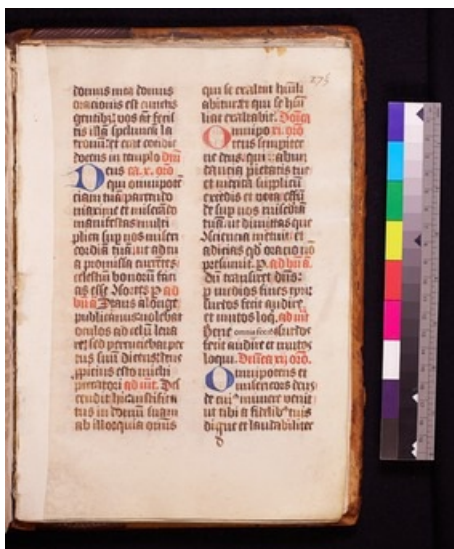 275
domus mea domus
orationis est cunctis
gentibus vos aut fecis
tis illa speluncā la
tronū et erat cotidie
docens in templo Dnīc
Deus ca. x. orō
qui omnipotē
ciam tuā parcendo
maxime et miserādo
manifestas multi
plica sup nos miseri
cordiā tuā ut ad tu
a promissa currētes
celestiū bonorū faci
as esse
publicanus nolebat
oculos ad celū leva
re sed percuciebat pec
tus suū dicens deus
ppicius esto michi
peccatori ad mt. Des
cendit hic iustifica
tus in domū suam
ab illo quia omnis
qui se exaltat humili
abitur et qui se hūi
liat exaltabit. Domīca
Omnipo xi. orō
tens sempiter
ne deus qui abun
dancia pietatis tue
et merita supplicū
excedis et vota effū
de sup nos miā
tuā ut dimittas que
ꝯsciencia metuit et
adicias qd oracio nō
presumit.
surdos fecit audire
et mutos loq. ad mt
Bene omnia fecit surdos
fecit audire et mutos
loqui. Domīca xij orō.
Omnipotens et
misericors deus
de cui munere venit
ut tibi a fidelib tuis
digne et laudabiliter